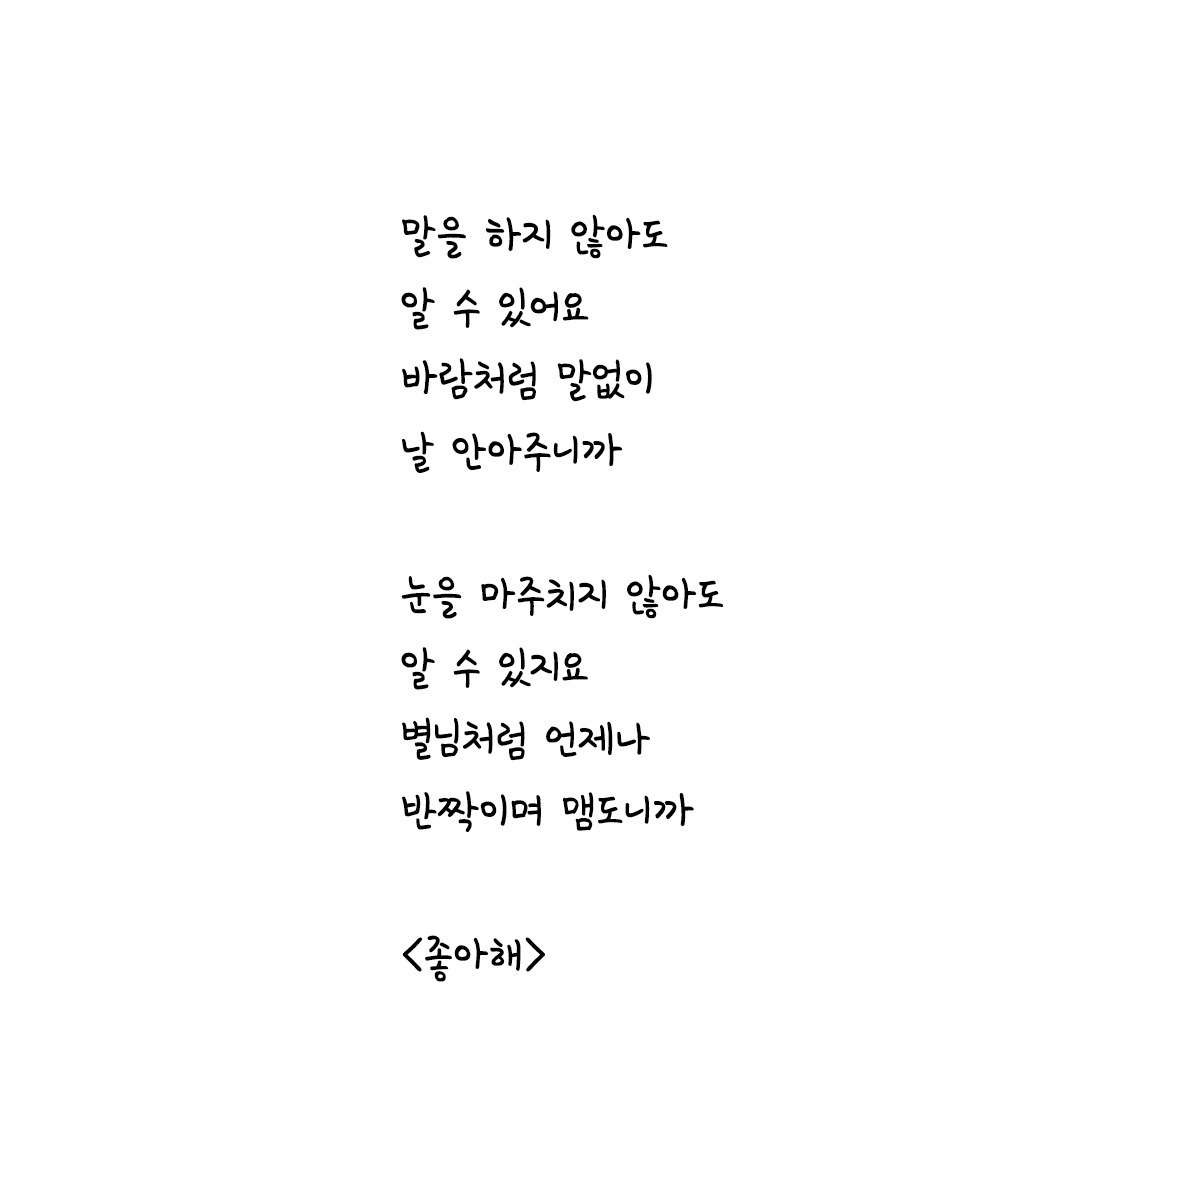 말을 하지 않아도
알 수 있어요
바람처럼 말없이
날 안아주니까
눈을 마주치지 않아도
알 수 있지요
별님처럼 언제나
반짝이며 맴도니까
<좋아해>